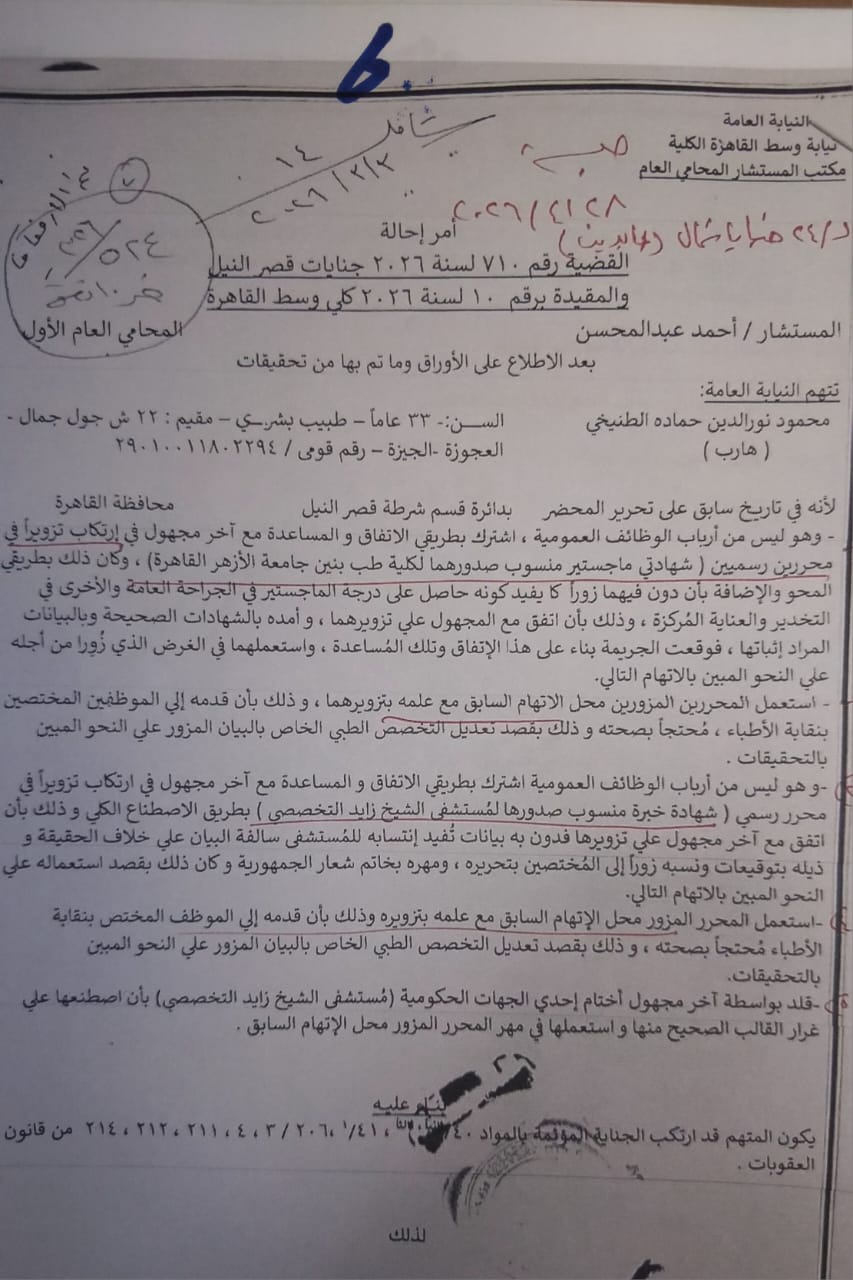 النيابة العامة
نيابة وسط القاهرة الكلية
مكتب المستشار المحامي العام
٢٠٢٦/٣/٢
أمر إحالة
القضية رقم ٧١٠ لسنة ٢٠٢٦ جنايات قصر النيل
والمقيدة برقم ١٠ لسنة ٢٠٢٦ كلي وسط القاهرة
المستشار / أحمد عبدالمحسن المحامي العام الأول
بعد الاطلاع على الأوراق وما تم بها من تحقيقات
تتهم النيابة العامة:
محمود نورالدين حماده الطنيخي السـن:- ٣٣ عاماً – طبيب بشري – مقيم : ٢٢ ش جول جمال -
( هارب ) العجوزة -الجيزة – رقم قومى / ٢٩٠١٠٠١١٨٠٢٢٩٤
لأنه في تاريخ سابق على تحرير المحضر بدائرة قسم شرطة قصر النيل محافظة القاهرة
- وهو ليس من أرباب الوظائف العمومية ، اشترك بطريقي الاتفاق و المساعدة مع آخر مجهول في إرتكاب تزويراً في
محررين رسميين ( شهادتي ماجستير منسوب صدورهما لكلية طب بنين جامعة الأزهر القاهرة) ، وكان ذلك بطريقي
المحو والإضافة بأن دون فيهما زوراً كا يفيد كونه حاصل على درجة الماجستير في الجراحة العامة والأخرى في
التخدير والعناية المُركزة ، وذلك بأن اتفق مع المجهول علي تزويرهما ، و أمده بالشهادات الصحيحة وبالبيانات
المراد إثباتها ، فوقعت الجريمة بناء على هذا الإتفاق وتلك المُساعدة ، واستعملهما في الغرض الذي زُورا من أجله
علي النحو المبين بالاتهام التالي.
- استعمل المحررين المزورين محل الاتهام السابق مع علمه بتزويرهما ، و ذلك بأن قدمه إلي الموظفين المختصين
بنقابة الأطباء ، مُحتجاً بصحته و ذلك بقصد تعديل التخصص الطبي الخاص بالبيان المزور علي النحو المبين
بالتحقيقات .
-و هو ليس من أرباب الوظائف العمومية اشترك بطريقي الاتفاق و المساعدة مع آخر مجهول في ارتكاب تزويراً في
محرر رسمي ( شهادة خبرة منسوب صدورها لمُستشفى الشيخ زايد التخصصي ) بطريق الاصطناع الكلي و ذلك بأن
اتفق مع آخر مجهول علي تزويرها فدون به بيانات تُفيد إنتسابه للمُستشفى سالفة البيان علي خلاف الحقيقة و
ذيله بتوقيعات ونسبه زوراً إلى المُختصين بتحريره ، ومهره بخاتم شعار الجمهورية و كان ذلك بقصد استعماله علي
النحو المبين بالاتهام التالي.
-استعمل المحرر المزور محل الإتهام السابق مع علمه بتزويره وذلك بأن قدمه إلي الموظف المختص بنقابة
الأطباء مُحتجاً بصحته ، و ذلك بقصد تعديل التخصص الطبي الخاص بالبيان المزور علي النحو المبين
بالتحقيقات.
-قلد بواسطة آخر مجهول أختام إحدي الجهات الحكومية (مُستشفى الشيخ زايد التخصصي) بأن اصطنعها علي
غرار القالب الصحيح منها و استعملها في مهر المحرر المزور محل الإتهام السابق .
بناء عليه
يكون المتهم قد ارتكب الجناية المؤثمة بالمواد ٤٠ ، ١/٤١ ، ٢٠٦ / ٣ ، ٤ ، ٢١١ ، ٢١٢ ، ٢١٤ من قانون
العقوبات .
لذلك